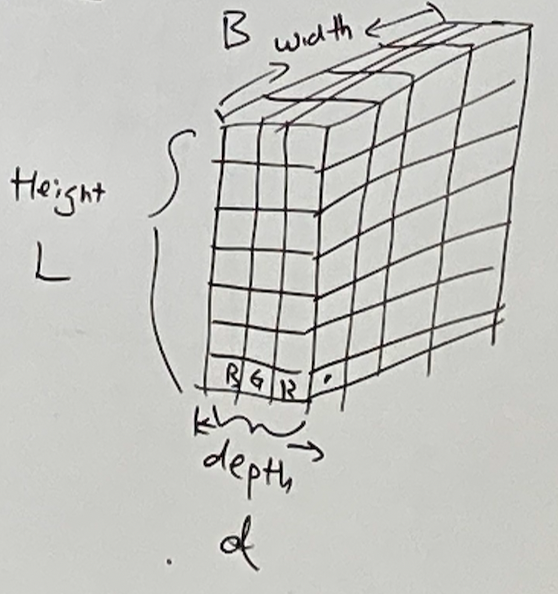 B width
Height
L
R G B
depth
d